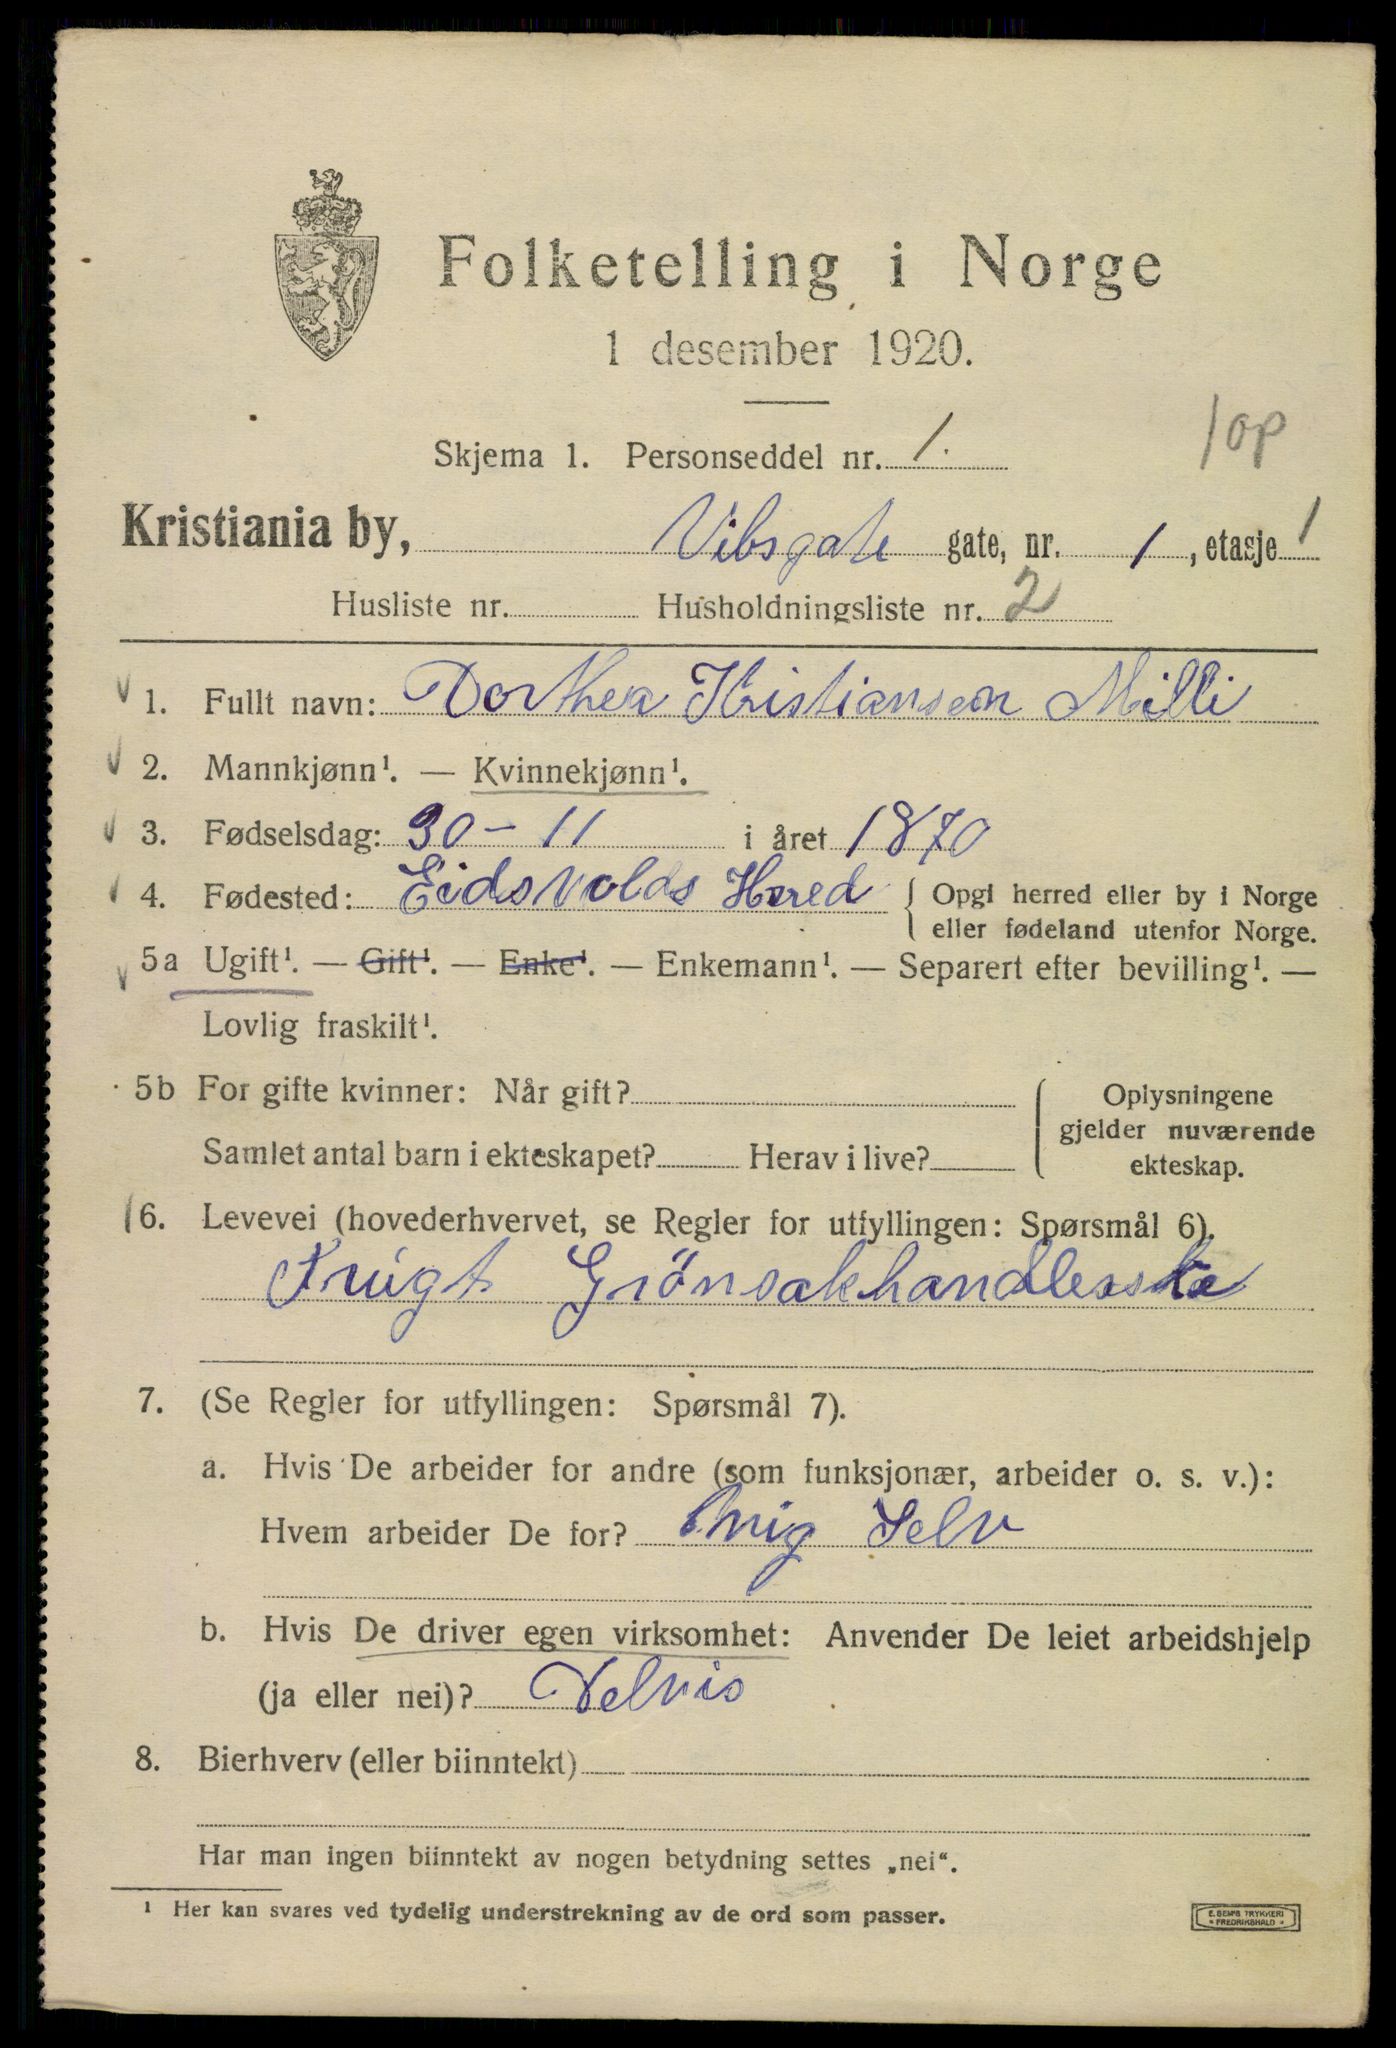 Folketelling i Norge
1 desember 1920.
Skjema 1. Personseddel nr. 1.
1 op
Kristiania by, Vibsgate gate, nr. 1, etasje 1
Husliste nr. Husholdningsliste nr. 2
1. Fullt navn: Dorthea Kristiansen Milli
2. Mannkjønn¹. — Kvinnekjønn¹.
3. Fødselsdag: 30 - 11 i året 1870
4. Fødested: Eidsvolds Hered { Opgi herred eller by i Norge
eller fødeland utenfor Norge.
5a Ugift¹. — Gift¹. — Enke¹. — Enkemann¹. — Separert efter bevilling¹. —
Lovlig fraskilt¹.
5b For gifte kvinner: Når gift?
Samlet antal barn i ekteskapet? Herav i live?
Oplysningene
gjelder nuværende
ekteskap.
6. Levevei (hovederhvervet, se Regler for utfyllingen: Spørsmål 6).
Frugt Grönsakhandlerske
7. (Se Regler for utfyllingen: Spørsmål 7).
a. Hvis De arbeider for andre (som funksjonær, arbeider o. s. v.):
Hvem arbeider De for? mig Selv
b. Hvis De driver egen virksomhet: Anvender De leiet arbeidshjelp
(ja eller nei)? Delvis
8. Bierhverv (eller biinntekt)
Har man ingen biinntekt av nogen betydning settes „nei“.
¹ Her kan svares ved tydelig understrekning av de ord som passer.
E. SEM'S TRYKKERI
FREDRIKSHALD